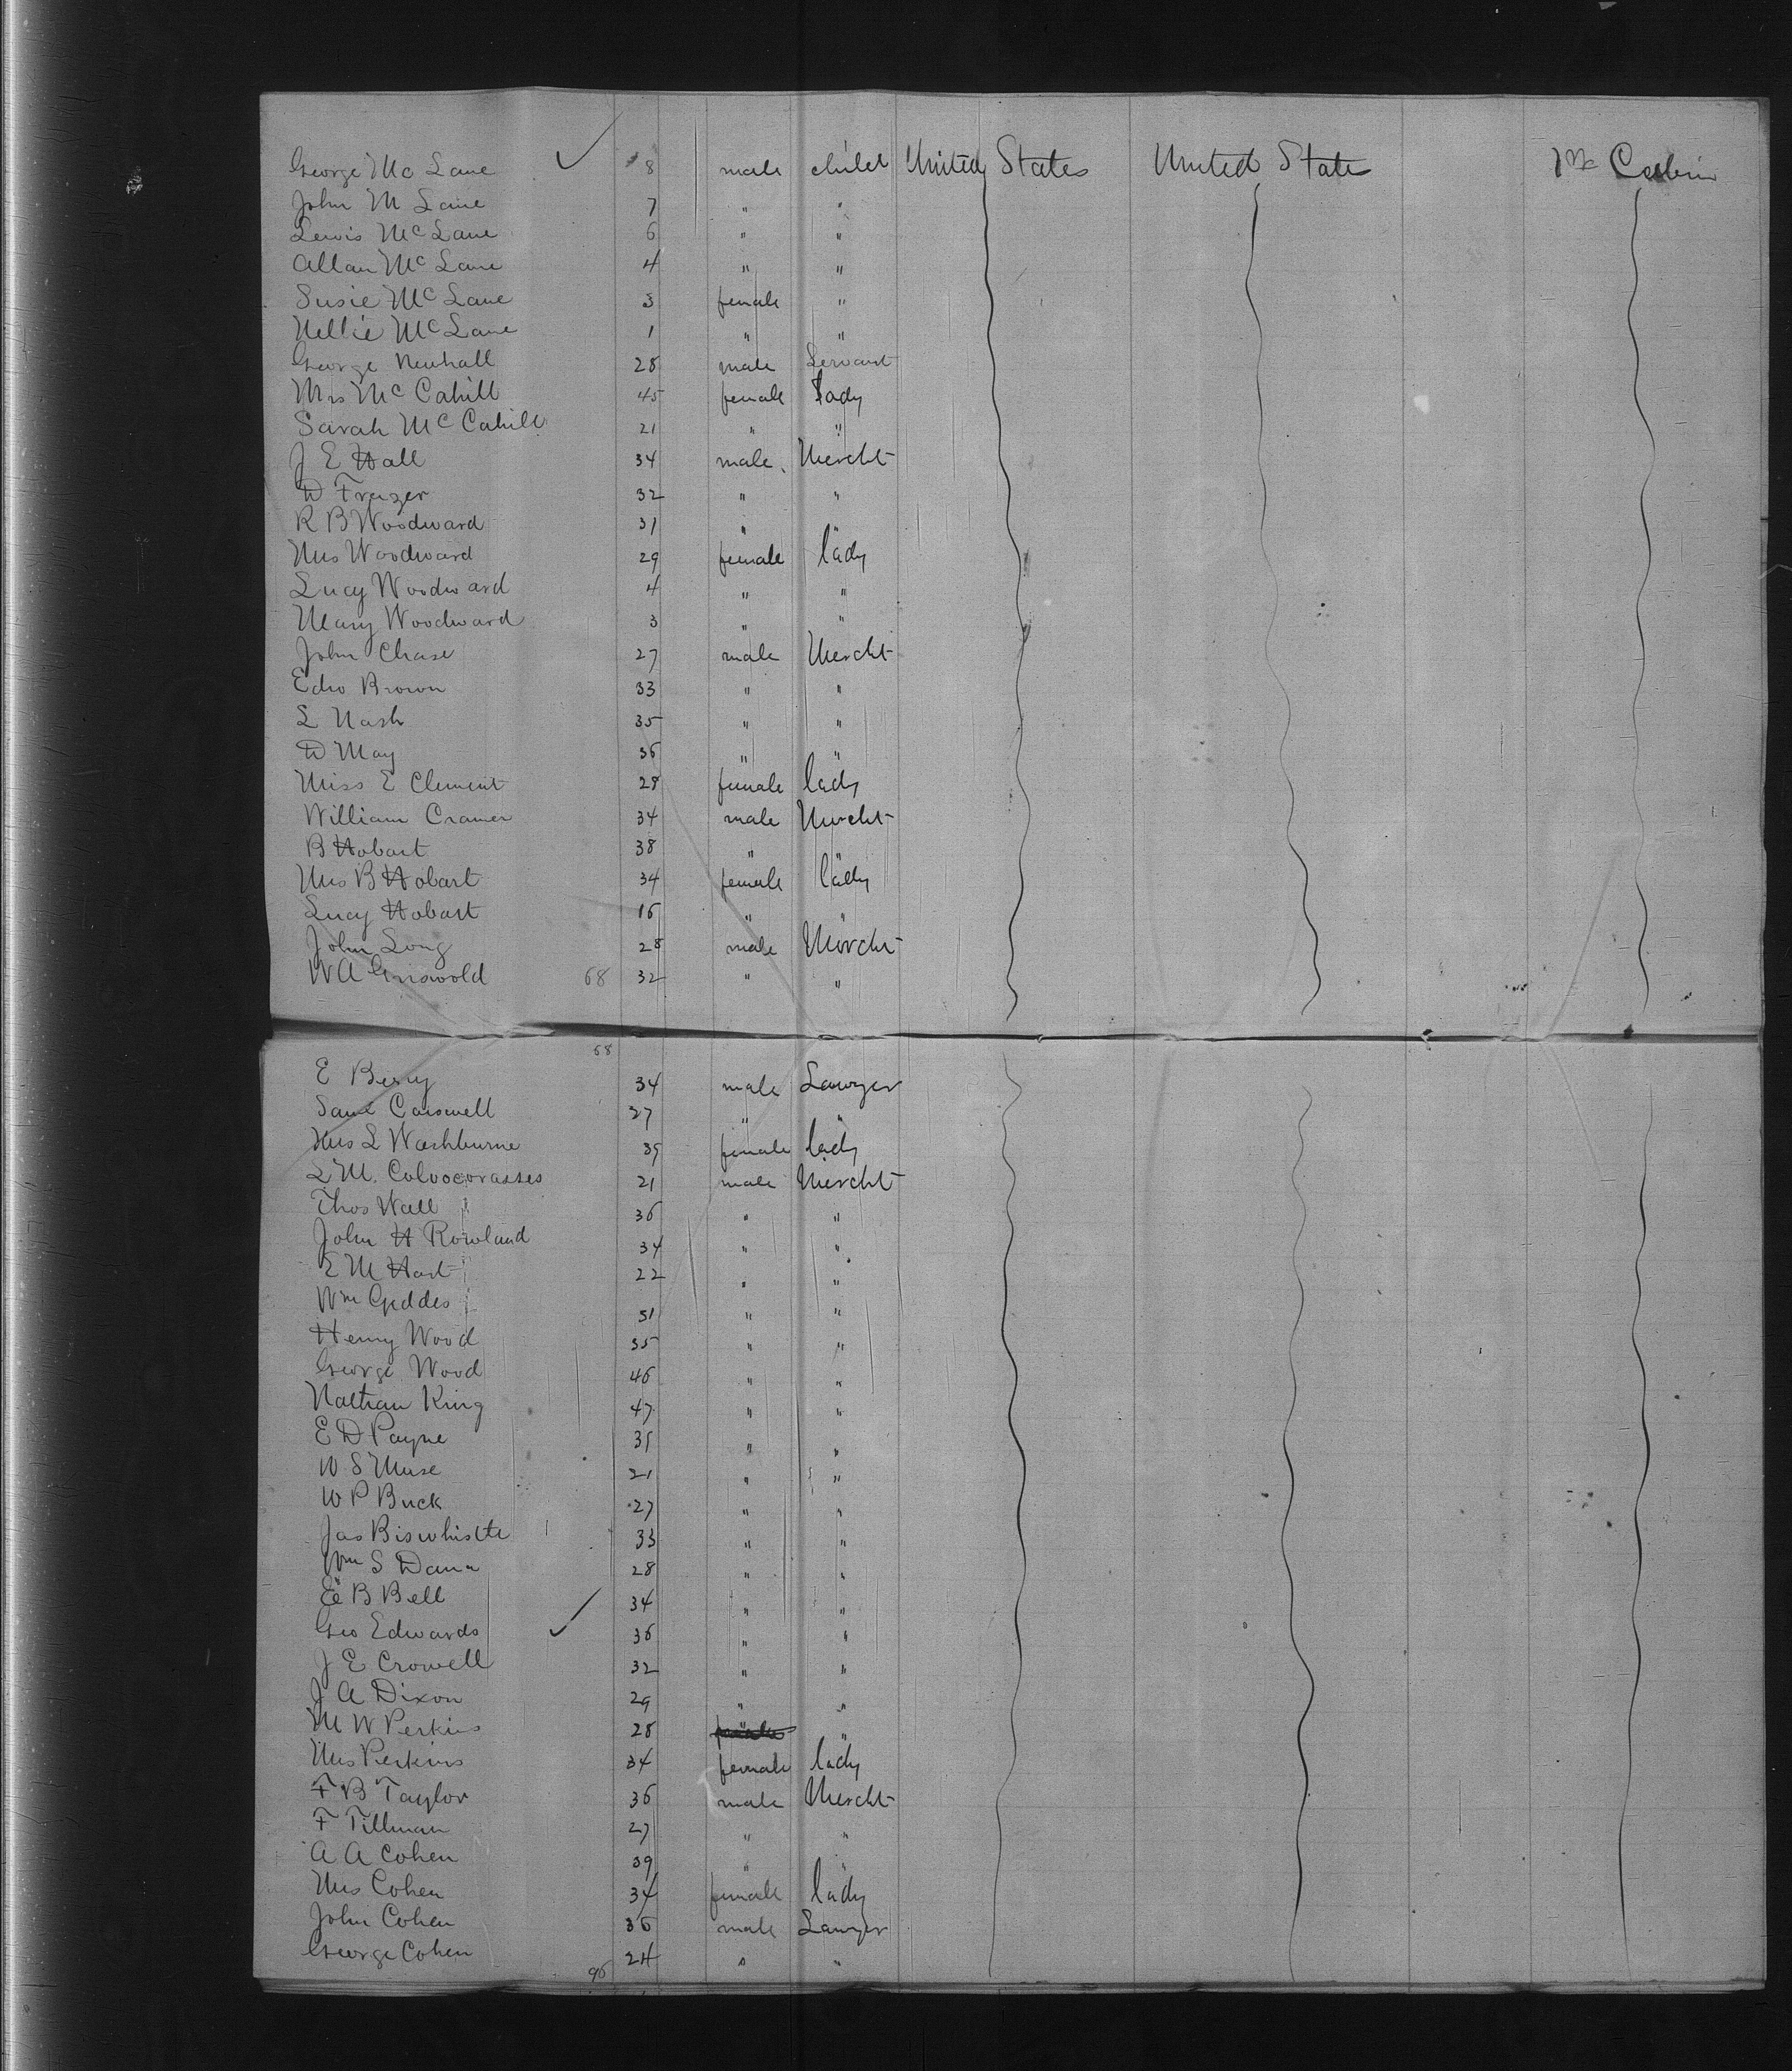 George Mc Lane 8 male child United States United State
John M Lane 7 " "
Lewis Mc Lane 6 " "
Allan Mc Lane 4 " "
Susie Mc Lane 3 female "
Nellie Mc Lane 1 " "
George Newhall 28 male Servant
Mrs Mc Cahill 45 female lady
Sarah Mc Cahill 21 " "
J E Hall 34 male Mercht
D Frazer 32 " "
R B Woodward 31 "
Mrs Woodward 29 female lady
Lucy Woodward 4 " "
Mary Woodward 3 " "
John Chase 27 male Mercht
Edw Brown 33 " "
L Nash 35 " "
D May 36 " "
Miss E Clement 28 female lady
William Cramer 34 male Mercht
B Hobart 38 " "
Mrs B Hobart 34 female lady
Lucy Hobart 16 " "
John Long 28 male Mercht
W A Griswold 68 32 " "
68
E Berry 34 male Lawyer
Saml Carswell 27 " "
Mrs L Washburne 39 female lady
L M. Colvocorasses 21 male Mercht
Thos Wall 36 " "
John H Rowland 34 " "
E M Hart 22 " "
Wm Geddes 51 " "
Henry Wood 35 " "
George Wood 46 " "
Nathan King 47 " "
E D Payne 35 " "
W S Muse 21 " "
W P Buck 27 " "
Jas 33 " "
Wm S Dana 28 " "
E B Bell 34 " "
Geo Edwards 36 " "
J E Crowell 32 " "
J A Dixon 29 " "
M W Perkins 28 "
Mrs Perkins 34 female lady
F B Taylor 36 male Mercht
F Tillman 27 " "
A A Cohen 39 " "
Mrs Cohen 34 female lady
John Cohen 36 male Lawyer
George Cohen 24 " "
96